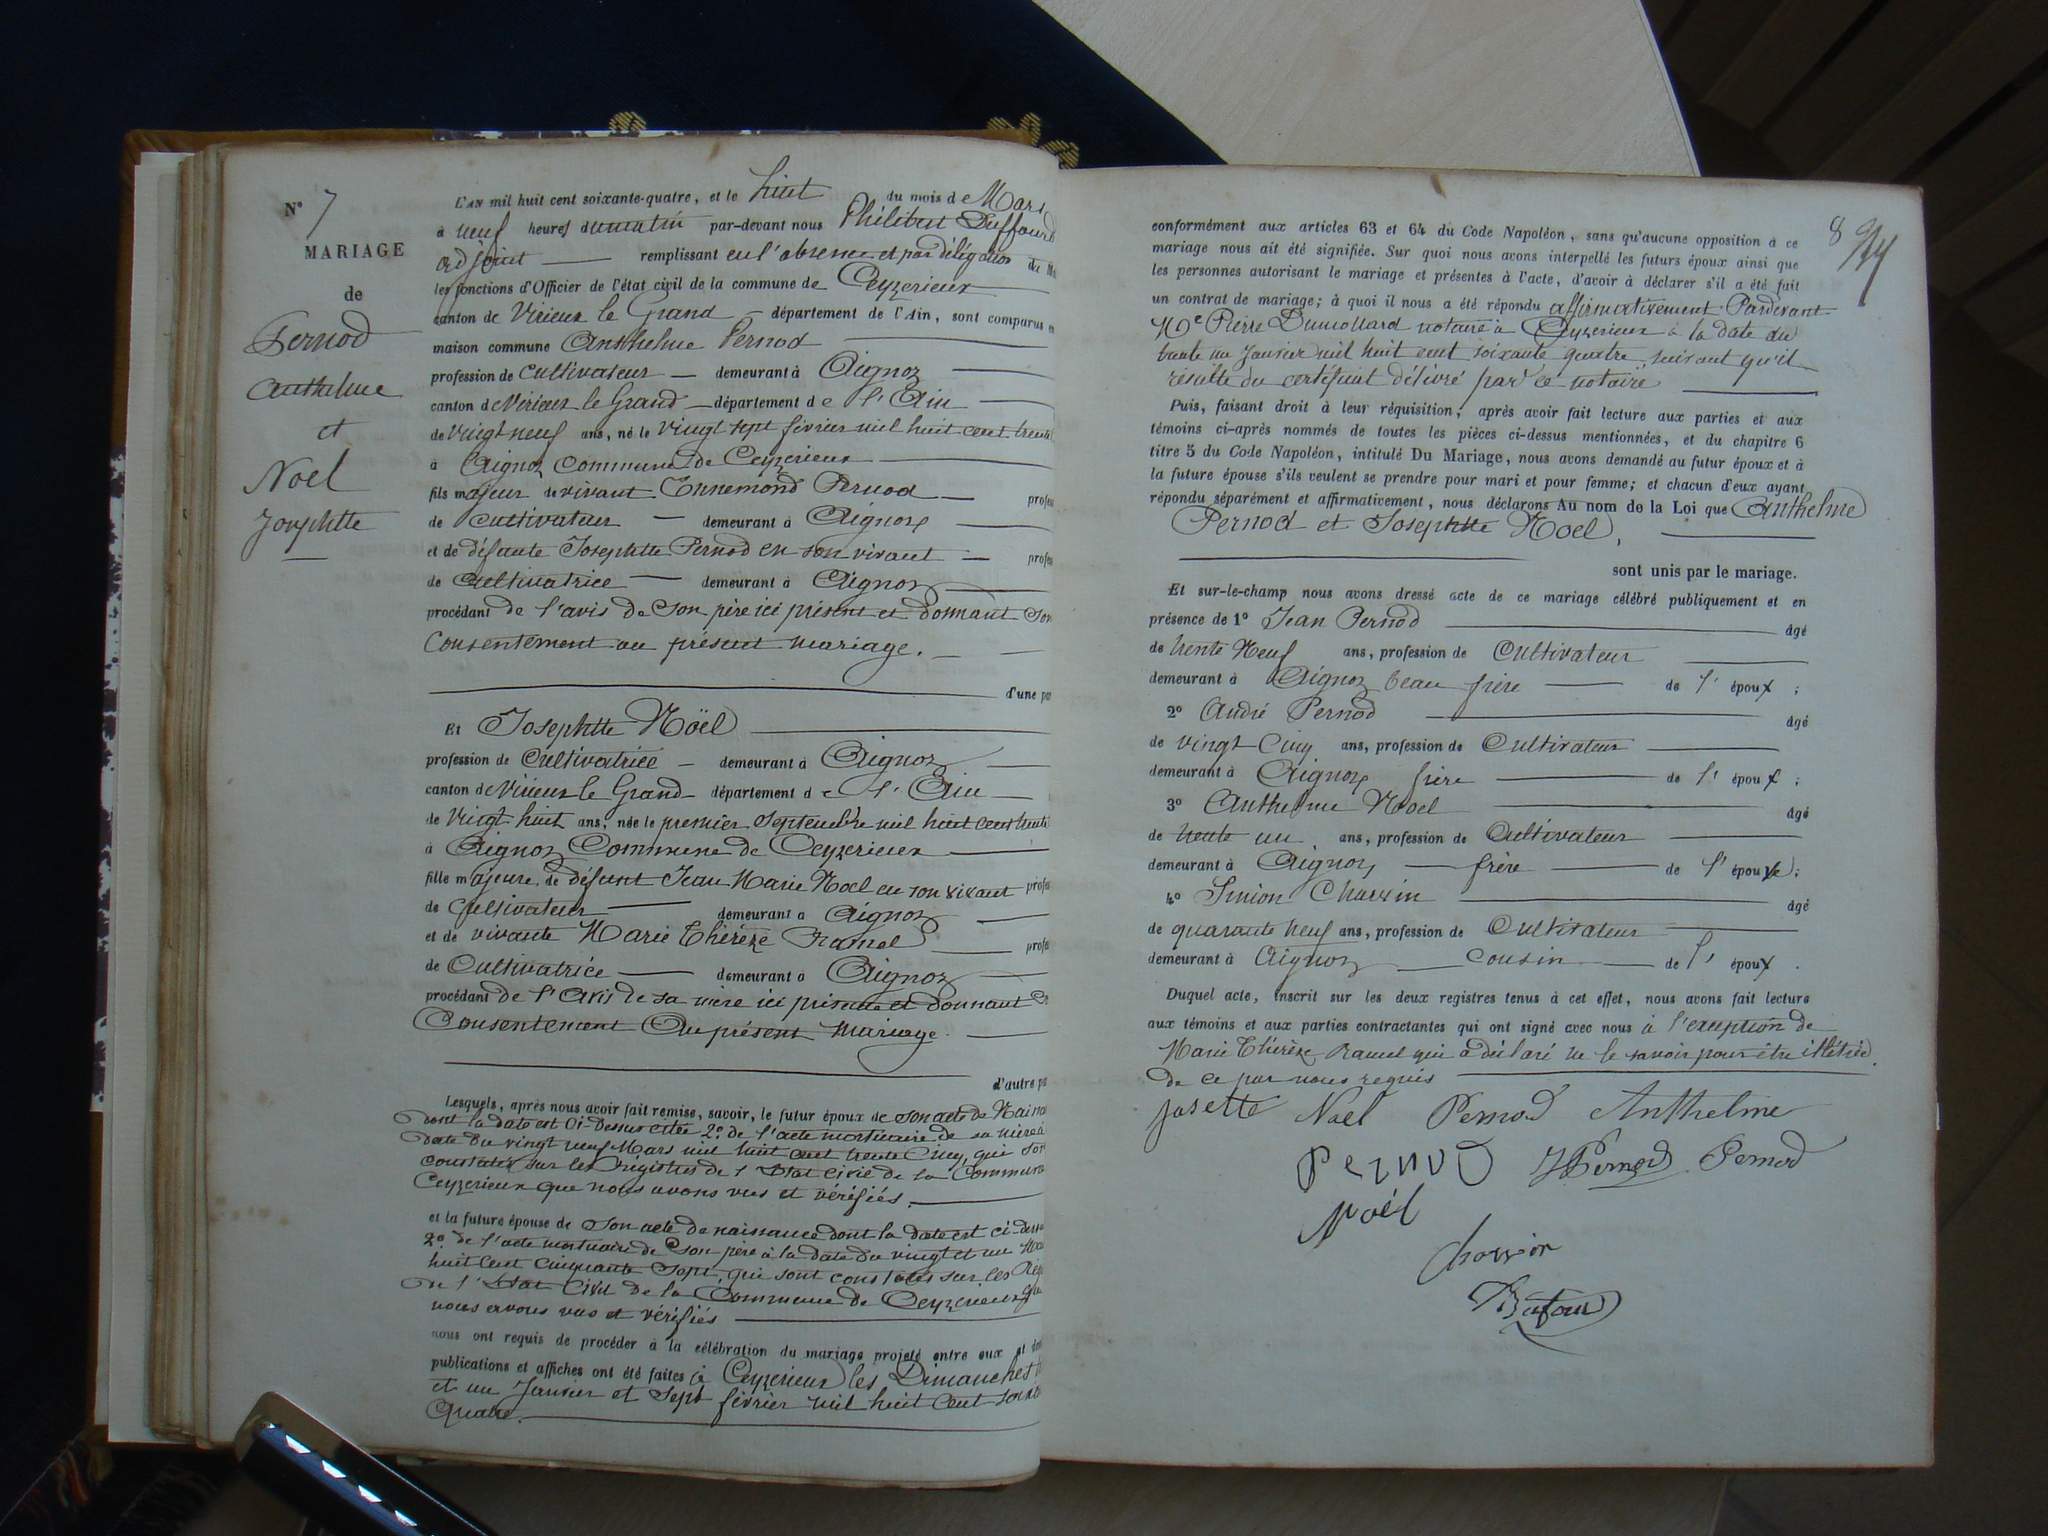 N° 7
MARIAGE
de
Pernod
Anthelme
et
Noel
Josephtte
L'AN mil huit cent soixante-quatre, et le huit du mois de Mars
à neuf heures du matin par-devant nous Philibert Duffour
adjoint remplissant en l'absence et par délégation du
les fonctions d'Officier de l'état civil de la commune de Ceyzerieux
canton de Virieux le Grand département de l'Ain, sont comparus en
maison commune Anthelme Pernod
profession de cultivateur demeurant à Aignoz
canton de Virieux le Grand département de l'Ain
de vingt neuf ans, né le vingt sept février mil huit cent trente
à Aignoz Commune de Ceyzerieux
fils majeur de vivant Ennemond Pernod profes
de cultivateur demeurant à Aignoz
et de défunte Josephtte Pernod en son vivant profes
de Cultivatrice demeurant à Aignoz
procédant de l'avis de son père ici présent et donnant son
Consentement au présent mariage.
d'une pa
Et Josephtte Noël
profession de Cultivatrice demeurant à Aignoz
canton de Virieux le Grand département de l'Ain
de Vingt huit ans, née le premier Septembre mil huit cent trente
à Aignoz Commune de Ceyzerieux
fille majeure de défunt Jean Marie Noel en son vivant profes
de Cultivateur demeurant à Aignoz
et de vivante Marie Thérèze Ramel profes
de Cultivatrice demeurant à Aignoz
procédant de l'avis de sa mère ici présente et donnant
Consentement Au présent Mariage.
d'autre pa
Lesquels, après nous avoir fait remise, savoir, le futur époux de son acte de Nais
dont la date est ci-dessus citée 2° de l'acte mortuaire de sa mère à
date du vingt neuf Mars mil huit cent trente cinq, qui son
constatés sur les registres de l'Etat Civil de la Commune
Ceyzerieux que nous avons vus et vérifiés.
et la future épouse de son acte de naissance dont la date est ci dess
2° de l'acte mortuaire de son père à la date du vingt et un
huit cent cinquante sept, qui sont constatés sur les Reg
de l'Etat Civil de la Commune de Ceyzerieux que
nous avons vus et vérifiés
nous ont requis de procéder à la célébration du mariage projeté entre eux et
publications et affiches ont été faites à Ceyzerieux les Dimanches
et un Janvier et sept février mil huit cent soixante
Quatre.
8
conformément aux articles 63 et 64 du Code Napoléon, sans qu'aucune opposition à ce
mariage nous ait été signifiée. Sur quoi nous avons interpellé les futurs époux ainsi que
les personnes autorisant le mariage et présentes à l'acte, d'avoir à déclarer s'il a été fait
un contrat de mariage; à quoi il nous a été répondu affirmativement Pardevant
Me Pierre Dumollard notaire à Ceyzerieux à la date du
trente un Janvier mil huit cent soixante quatre suivant qu'il
résulte du certificat délivré par ce notaire
Puis, faisant droit à leur réquisition, après avoir fait lecture aux parties et aux
témoins ci-après nommés de toutes les pièces ci-dessus mentionnées, et du chapitre 6
titre 5 du Code Napoléon, intitulé Du Mariage, nous avons demandé au futur époux et à
la future épouse s'ils veulent se prendre pour mari et pour femme; et chacun d'eux ayant
répondu séparément et affirmativement, nous déclarons Au nom de la Loi que Anthelme
Pernod et Josephtte Noel,
sont unis par le mariage.
Et sur-le-champ nous avons dressé acte de ce mariage célébré publiquement et en
présence de 1° Jean Pernod âgé
de trente Neuf ans, profession de Cultivateur
demeurant à Aignoz beau frère de l'époux ;
2° André Pernod âgé
de vingt Cinq ans, profession de Cultivateur
demeurant à Aignoz frère de l'époux ;
3° Anthelme Noel âgé
de trente un ans, profession de Cultivateur
demeurant à Aignoz frère de l'épouse ;
4° Simion Charvin âgé
de quarante neuf ans, profession de Cultivateur
demeurant à Aignoz cousin de l'époux .
Duquel acte, inscrit sur les deux registres tenus à cet effet, nous avons fait lecture
aux témoins et aux parties contractantes qui ont signé avec nous à l'exception de
Marie Thérèze Ramel qui a déclaré ne le savoir pour être illétrée
de ce par nous requis
Josette Noel Pernod Anthelme
Pernod JPernod Pernod
Noël
Charvin
Dufour